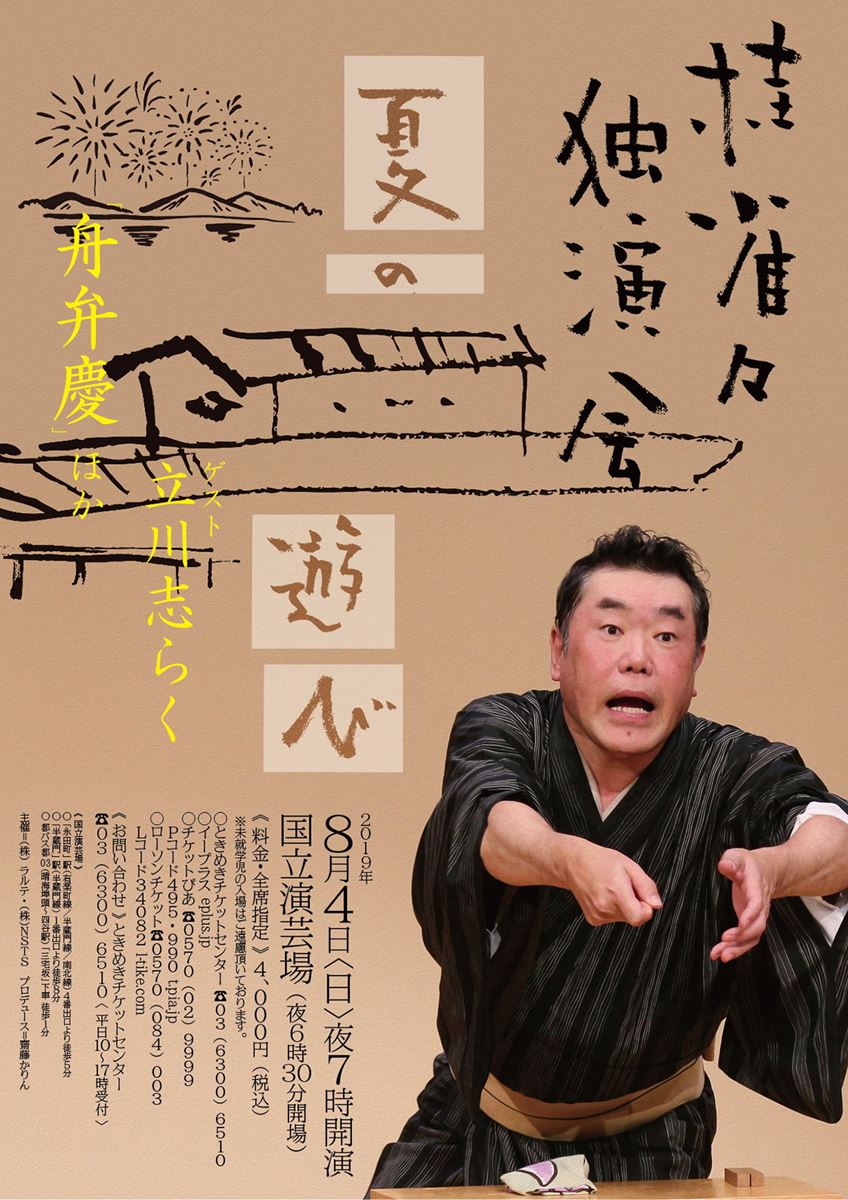 桂雀々
独演会
夏の
遊び
ゲスト
立川志らく
「舟弁慶」ほか
2019年
8月4日〈日〉夜7時開演
国立演芸場（夜6時30分開場）
《料金・全席指定》4,000円（税込）
※未就学児の入場はご遠慮頂いております。
○ときめきチケットセンター☎03（6300）6510
○イープラス eplus.jp
○チケットぴあ☎0570（02）9999
Pコード495・990 t.pia.jp
○ローソンチケット☎0570（084）003
Lコード34082 l-tike.com
《お問い合わせ》ときめきチケットセンター
☎03（6300）6510〈平日10〜17時受付〉
《国立演芸場》
○「永田町」駅（有楽町線／半蔵門線／南北線）4番出口より徒歩5分
○「半蔵門」駅（半蔵門線）1番出口より徒歩8分
○都バス都03（晴海埠頭〜四谷駅）「三宅坂」下車 徒歩1分
主催＝（株）ラルテ・（株）NSTS プロデュース＝齋藤かりん